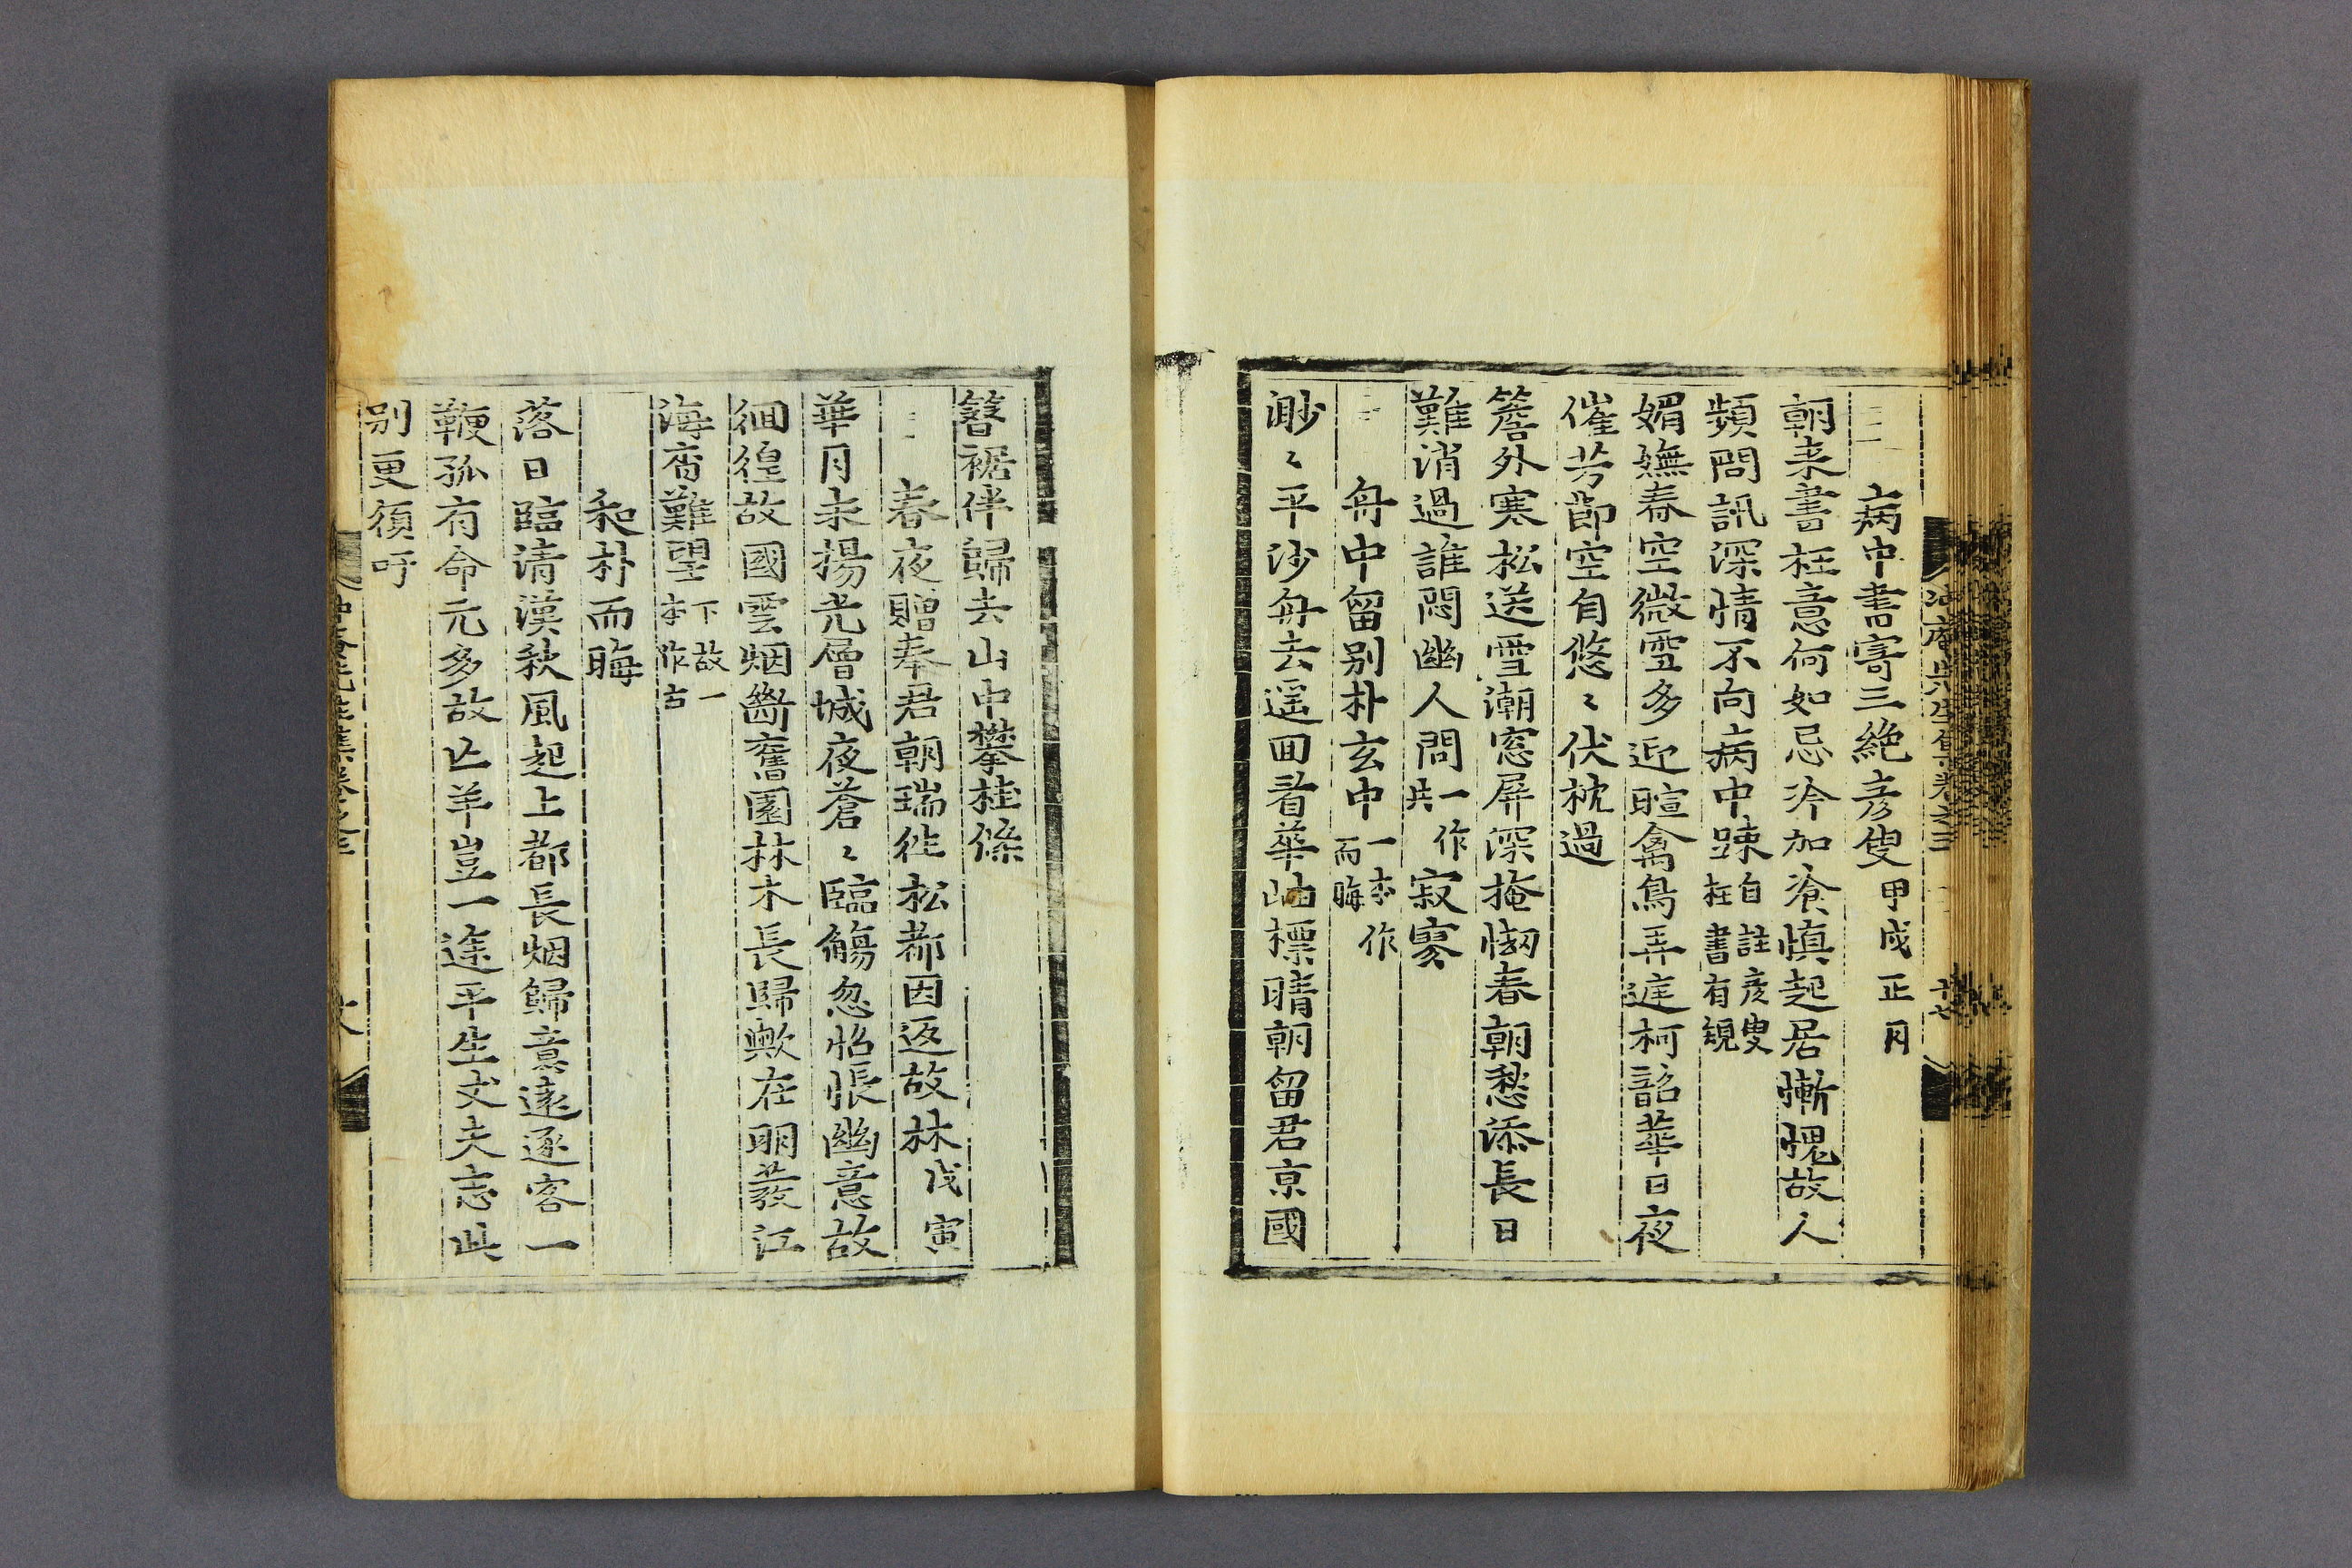 病中書寄三絶彦叟甲戌正月
朝来書枉意何如忌冷加飡愼起居慚愧故人
頻問訊深情不向病中踈自註彦叟枉書有規
媚嫵春空微雪多迎暄禽鳥弄庭柯韶華日夜
催芳節空自悠〻伏枕過
簷外寒松送雪潮窓屏深掩惱春朝愁添長日
難消過誰問幽人問一作共寂寥
舟中留别朴玄中一本作而晦
渺〻平沙舟去遥回看華岫標晴朝留君京國
簪裾伴歸去山中攀桂條
春夜贈奉君朝瑞徃松都因返故林戊寅
華月未揚光層城夜蒼〻臨觴忽怊悵幽意故
徊徨故國雲烟斷舊園林木長歸歟在明發江
海杳難望下故一本作古
和朴而晦
落日臨清漢秋風起上都長烟歸意遠逐客一
鞭孤有命元多故亡羊豈一途平生丈夫志此
别更須吁
冲庵先生集卷之三